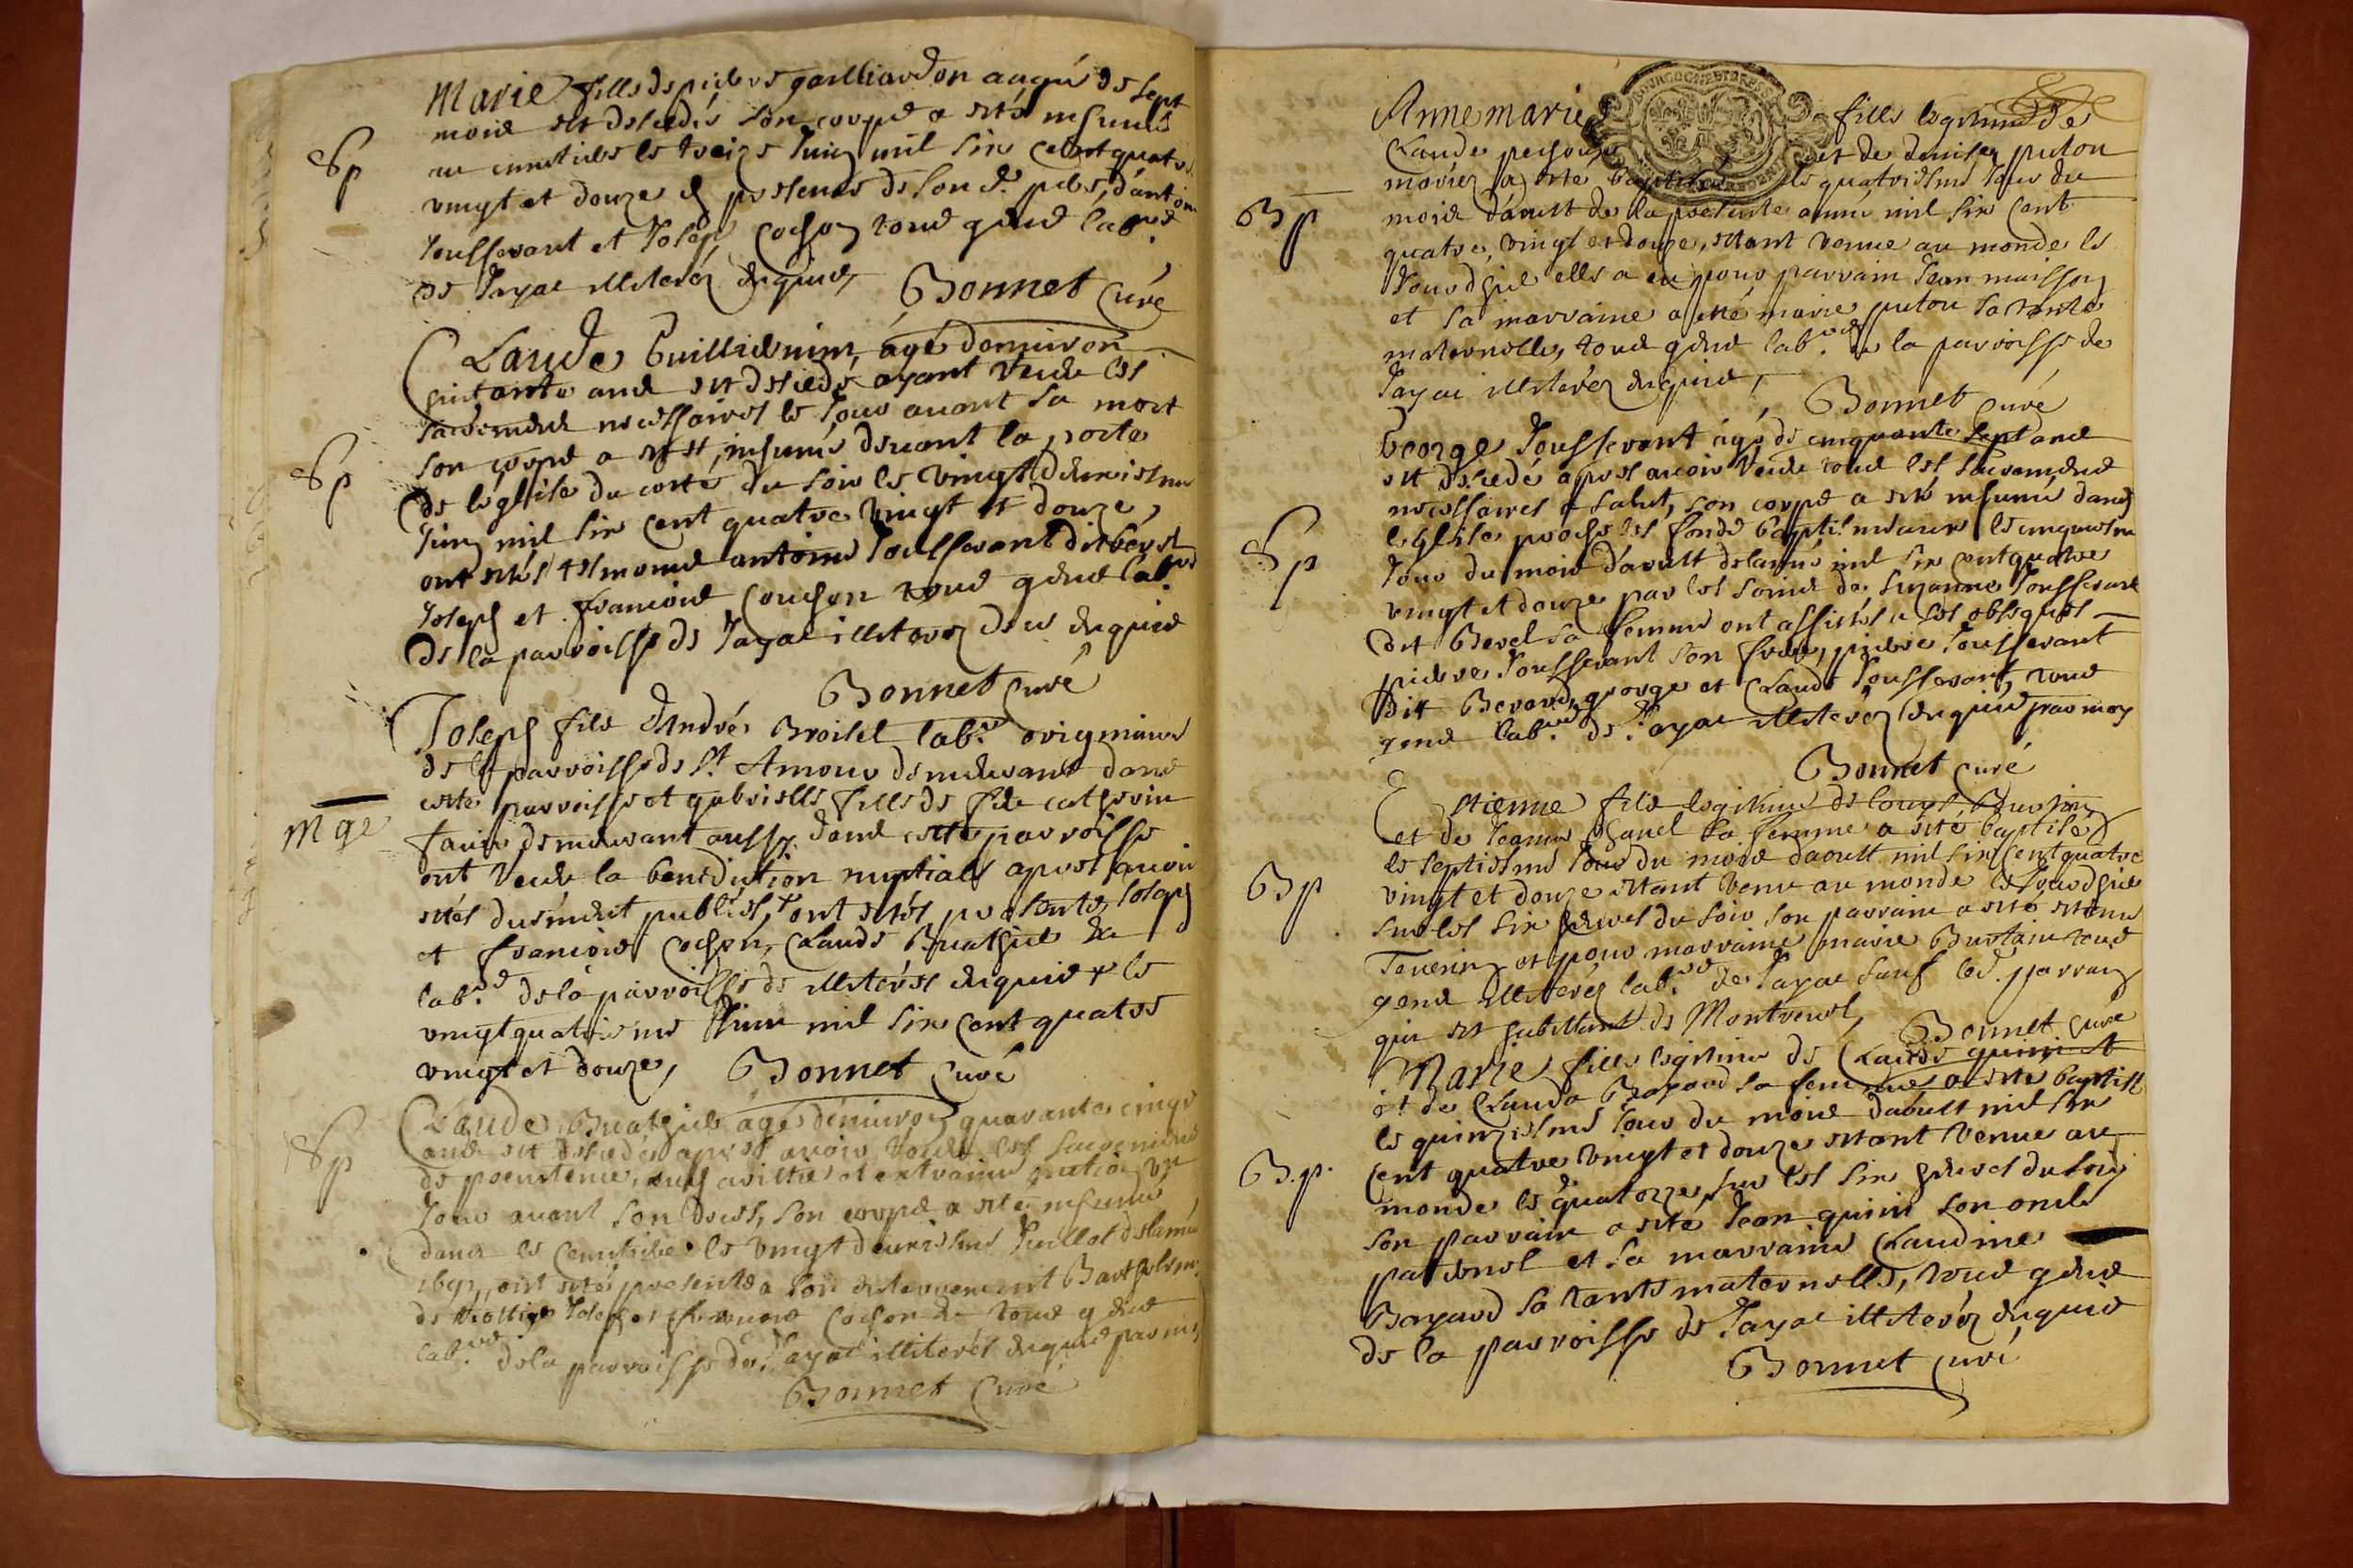 Sp
Marie fille de pierre gailliardon augée de sept
mois est decedée son corps a esté inhumé
au cimetiere le treize Juin mil six cent quatre
vingt et douze en presence de son d. pere, d'antoine
Jousserant et Joseph Cochon tous gens lab.rs
de Jayat illiterez enquis, Bonnet curé
Sp
Claude Guillienin, agé denviron
huitante ans est decedé ayant receu les
sacremens necessaires le jour avant sa mort
son corps a esté, inhumé devant la porte
de leglise du costé du soir le vingt deuxiesme
Juin mil six cent quatre vingt et douze,
ont estés tesmoins antoine Jousserant dit berel
Joseph et francois Couchon tous gens lab.rs
de la parroisse de Jayat illiterez de ce enquis
Bonnet curé
Mge
Joseph fils d'André Broisel lab.r originaire
de la parroisse de St. Amour demeurant dans
cette parroisse et gabrielle fille de feu catherin
faure demeurant aussy dans cette parroisse
ont receu la benediction nuptiale apres avoir
estés duëment publiés, ont estés presents Joseph
et francois Cochon, Claude Buathier
lab.rs de la parroisse de illiterés enquis le
vingt quatriesme Juin mil six cent quatre
vingt et douze, Bonnet curé
Sp
Claude Buathier agé denviron quarante cinqs
ans est decedé apres avoir receu les sacremens
de poenitence, euch avistie et extraime onction un
jour avant son deces, son corps a esté inhumé
dans le cemitiere le vingt deuxiesme Juillet de lannée
1692, ont estés presents a son enterrement Bartholeme
de Joseph et francois Cochon tous gens
lab.rs de la parroisse de Jayat illiterés enquis par moy
Bonnet curé
BOURGOGNE ET BRESSE
Bp
Anne marie fille legitime de
Claude pechoux et de denise puton
mariez a esté baptisée le quatriesme jour du
mois d'aoust de la presente année mil six cent
quatre, vingt et douze, estant venue au monde le
jour d'hier elle a eu pour parrain Jean maisson
et sa marraine a esté marie puton sa tante
maternelle, tous gens lab.rs de la parroisse de
Jayat illiterez enquis,
Bonnet curé
Sp
George Jousserant agé de cinquante sept ans
est decedé apres avoir receu tous les sacremens
necessaires a salut, son corps a esté inhumé dans
leglise proche les fonds baptismeaux le cinquiesme
jour du mois d'aoust de lannée mil six cent quatre
vingt et douze par les soins de Suzanne Jousserant
dit Berel sa femme ont assistés a ses obseques
pierre Jousserant son frere, pierre Jousserant
dit Berard, george et Claude Jousserant, tous
gens lab.rs de Jayat illiterez enquis par moy
Bonnet curé
Bp
Estienne fils legitime de Louys
et de Jeanne Chanel sa femme a esté baptisé
le septiesme jour du mois d'aoust mil six cent quatre
vingt et douze estant venu au monde le jour d'hier
sur les six heures du soir son parrain a esté estienne
Tevenin et pour marraine marie Burtain tous
gens illiterez lab.rs de Jayat sauf led. parrain
qui est habittant de Montrevel,
Bonnet curé
B.p.
Marie fille legitime de Claude quinin et
et de Clauda Bayard sa femme a esté baptisée
le quinziesme jour du mois d'aoust mil six
cent quatre vingt et douze estant venue au
monde le quatorze sur les six heures du soir
son parrain a esté Jean quinin son oncle
paternel et sa marraine Claudine
Bayard sa tante maternelle, tous gens
de la parroisse de Jayat illiterez enquis
Bonnet curé